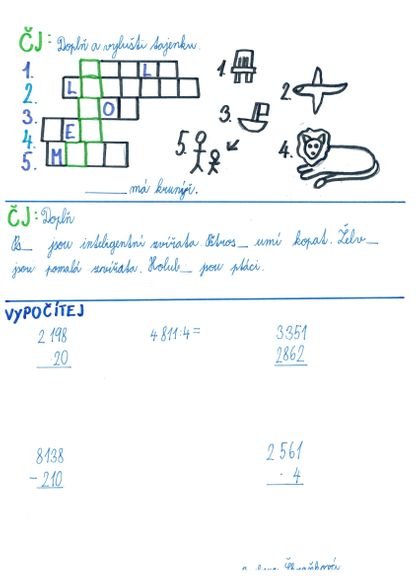 ČJ: Doplň a vylušti tajenku.
1. L
2. L
3. O
4. E
5. M
1.
2.
3.
5.
4.
____ má krunýř.
ČJ: Doplň
Ps_ jsou inteligentní zvířata. Pštros_ umí kopat. Želv_
jsou pomalá zvířata. Holub_ jsou ptáci.
VYPOČÍTEJ
2 198
20
4 811:4=
3351
2862
8138
- 210
2 561
· 4